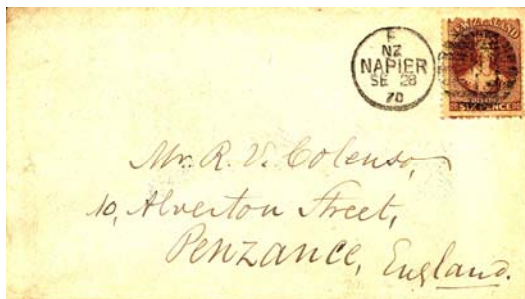 F
NZ
NAPIER
SE 28
70
SIXPENCE
Mr. R. V. Colenso,
10, Alverton Street,
Penzance, England.